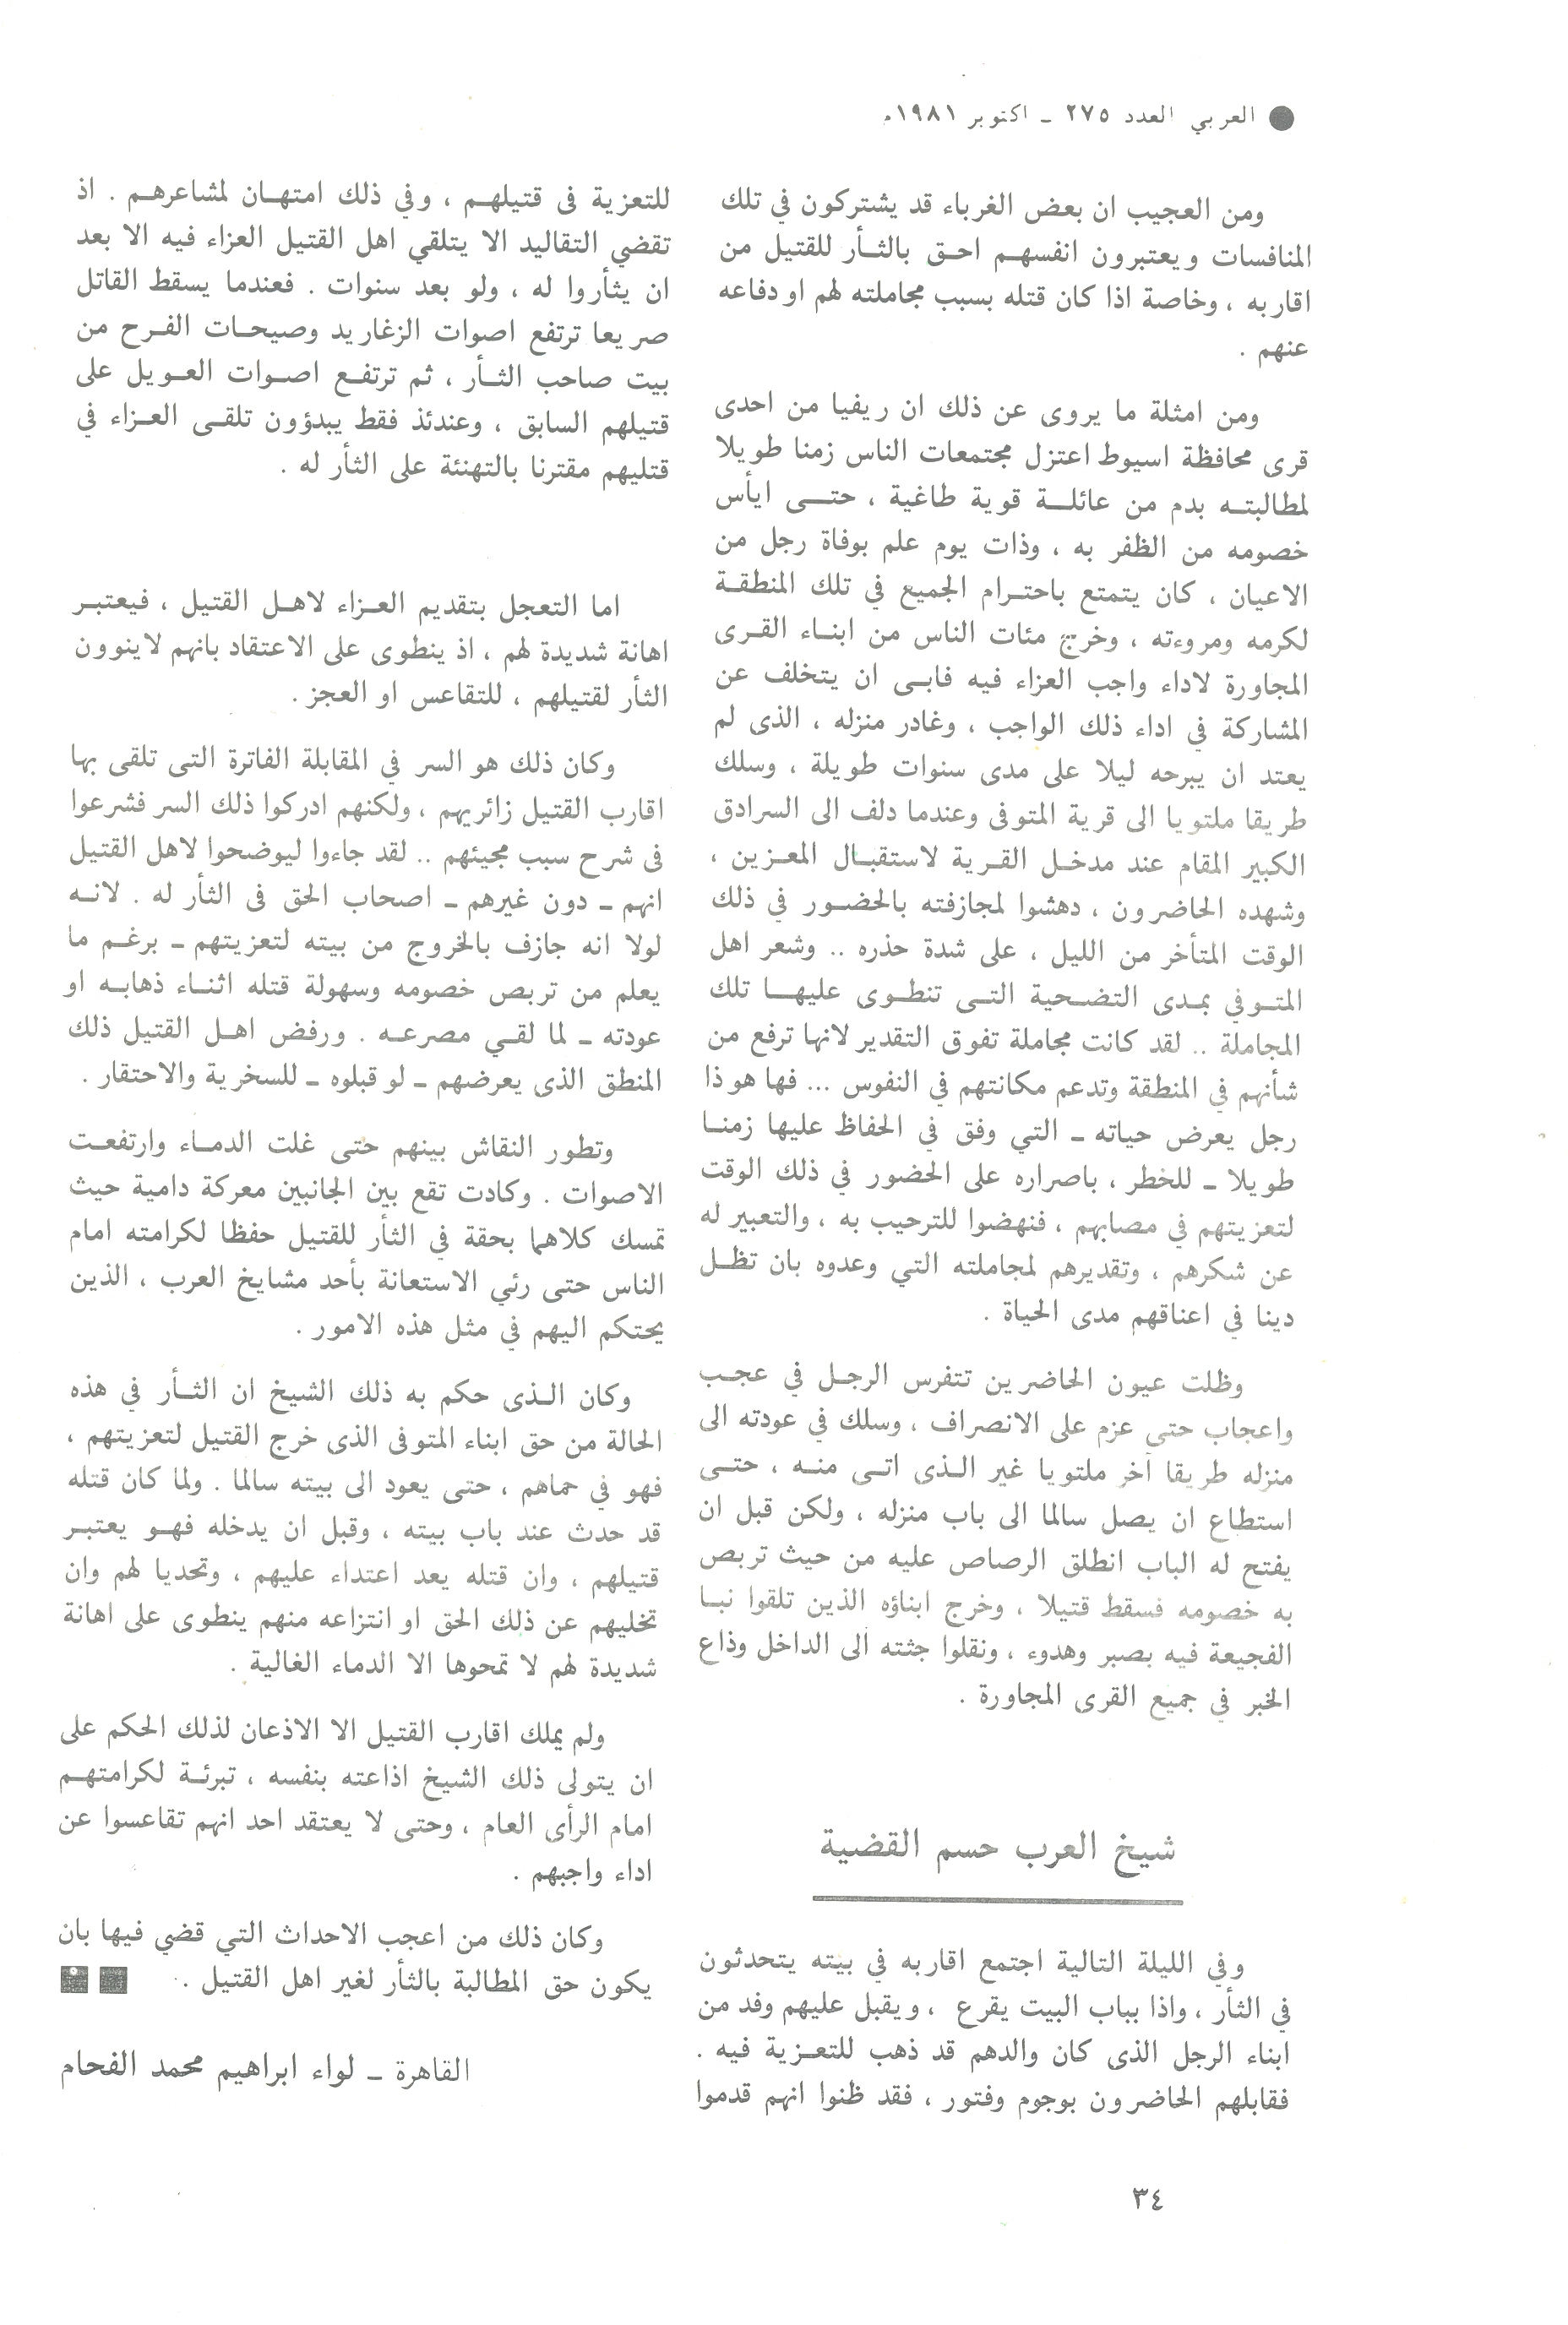 العربي العدد ٢٧٥ ـ اكتوبر ١٩٨١م
ومن العجيب ان بعض الغرباء قد يشتركون في تلك
المنافسات ويعتبرون انفسهم احق بالثأر للقتيل من
اقاربه ، وخاصة اذا كان قتله بسبب مجاملته لهم او دفاعه
عنهم .
ومن امثلة ما يروى عن ذلك ان ريفيا من احدى
قرى محافظة اسيوط اعتزل مجتمعات الناس زمنا طويلا
لمطالبته بدم من عائلة قوية طاغية ، حتى ايأس
خصومه من الظفر به ، وذات يوم علم بوفاة رجل من
الاعيان ، كان يتمتع باحترام الجميع في تلك المنطقة
لكرمه ومروءته ، وخرج مئات الناس من ابناء القرى
المجاورة لاداء واجب العزاء فيه فابى ان يتخلف عن
المشاركة في اداء ذلك الواجب ، وغادر منزله ، الذى لم
يعتد ان يبرحه ليلا على مدى سنوات طويلة ، وسلك
طريقا ملتويا الى قرية المتوفى وعندما دلف الى السرادق
الكبير المقام عند مدخل القرية لاستقبال المعزين ،
وشهده الحاضرون ، دهشوا لمجازفته بالحضور في ذلك
الوقت المتأخر من الليل ، على شدة حذره .. وشعر اهل
المتوفي بمدى التضحية التى تنطوى عليها تلك
المجاملة .. لقد كانت مجاملة تفوق التقدير لانها ترفع من
شأنهم في المنطقة وتدعم مكانتهم في النفوس ... فها هو ذا
رجل يعرض حياته ـ التي وفق في الحفاظ عليها زمنا
طويلا ـ للخطر ، باصراره على الحضور في ذلك الوقت
لتعزيتهم في مصابهم ، فنهضوا للترحيب به ، والتعبير له
عن شكرهم ، وتقديرهم لمجاملته التي وعدوه بان تظل
دينا في اعناقهم مدى الحياة .
وظلت عيون الحاضرين تتفرس الرجل في عجب
واعجاب حتى عزم على الانصراف ، وسلك في عودته الى
منزله طريقا آخر ملتويا غير الذى اتى منه ، حتى
استطاع ان يصل سالما الى باب منزله ، ولكن قبل ان
يفتح له الباب انطلق الرصاص عليه من حيث تربص
به خصومه فسقط قتيلا ، وخرج ابناؤه الذين تلقوا نبا
الفجيعة فيه بصبر وهدوء ، ونقلوا جثته الى الداخل وذاع
الخبر في جميع القرى المجاورة .
شيخ العرب حسم القضية
وفي الليلة التالية اجتمع اقاربه في بيته يتحدثون
في الثأر ، واذا بباب البيت يقرع ، ويقبل عليهم وفد من
ابناء الرجل الذى كان والدهم قد ذهب للتعزية فيه .
فقابلهم الحاضرون بوجوم وفتور ، فقد ظنوا انهم قدموا
للتعزية فى قتيلهم ، وفي ذلك امتهان لمشاعرهم . اذ
تقضي التقاليد الا يتلقي اهل القتيل العزاء فيه الا بعد
ان يثأروا له ، ولو بعد سنوات . فعندما يسقط القاتل
صريعا ترتفع اصوات الزغاريد وصيحات الفرح من
بيت صاحب الثأر ، ثم ترتفع اصوات العويل على
قتيلهم السابق ، وعندئذ فقط يبدؤون تلقى العزاء في
قتليهم مقترنا بالتهنئة على الثأر له .
اما التعجل بتقديم العزاء لاهل القتيل ، فيعتبر
اهانة شديدة لهم ، اذ ينطوى على الاعتقاد بانهم لاينوون
الثأر لقتيلهم ، للتقاعس او العجز .
وكان ذلك هو السر في المقابلة الفاترة التى تلقى بها
اقارب القتيل زائريهم ، ولكنهم ادركوا ذلك السر فشرعوا
فى شرح سبب مجيئهم .. لقد جاءوا ليوضحوا لاهل القتيل
انهم ـ دون غيرهم ـ اصحاب الحق فى الثأر له . لانه
لولا انه جازف بالخروج من بيته لتعزيتهم ـ برغم ما
يعلم من تربص خصومه وسهولة قتله اثناء ذهابه او
عودته ـ لما لقي مصرعه . ورفض اهل القتيل ذلك
المنطق الذى يعرضهم ـ لو قبلوه ـ للسخرية والاحتقار .
وتطور النقاش بينهم حتى غلت الدماء وارتفعت
الاصوات . وكادت تقع بين الجانبين معركة دامية حيث
تمسك كلاهما بحقة في الثأر للقتيل حفظا لكرامته امام
الناس حتى رئي الاستعانة بأحد مشايخ العرب ، الذين
يحتكم اليهم في مثل هذه الامور .
وكان الذى حكم به ذلك الشيخ ان الثأر في هذه
الحالة من حق ابناء المتوفى الذى خرج القتيل لتعزيتهم ،
فهو في حماهم ، حتى يعود الى بيته سالما . ولما كان قتله
قد حدث عند باب بيته ، وقبل ان يدخله فهو يعتبر
قتيلهم ، وان قتله يعد اعتداء عليهم ، وتحديا لهم وان
تخليهم عن ذلك الحق او انتزاعه منهم ينطوى على اهانة
شديدة لهم لا تمحوها الا الدماء الغالية .
ولم يملك اقارب القتيل الا الاذعان لذلك الحكم على
ان يتولى ذلك الشيخ اذاعته بنفسه ، تبرئة لكرامتهم
امام الرأى العام ، وحتى لا يعتقد احد انهم تقاعسوا عن
اداء واجبهم .
وكان ذلك من اعجب الاحداث التي قضي فيها بان
يكون حق المطالبة بالثأر لغير اهل القتيل .
القاهرة ـ لواء ابراهيم محمد الفحام
٣٤